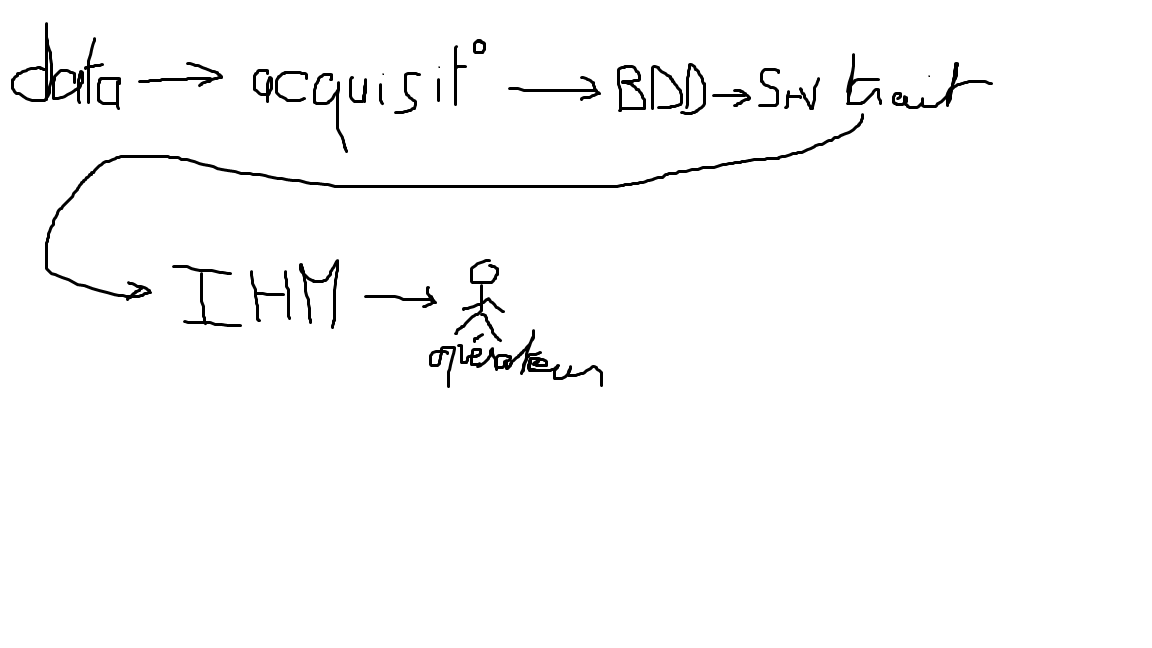 data → acquisit° → BDD → Srv trait
IHM →
opérateur